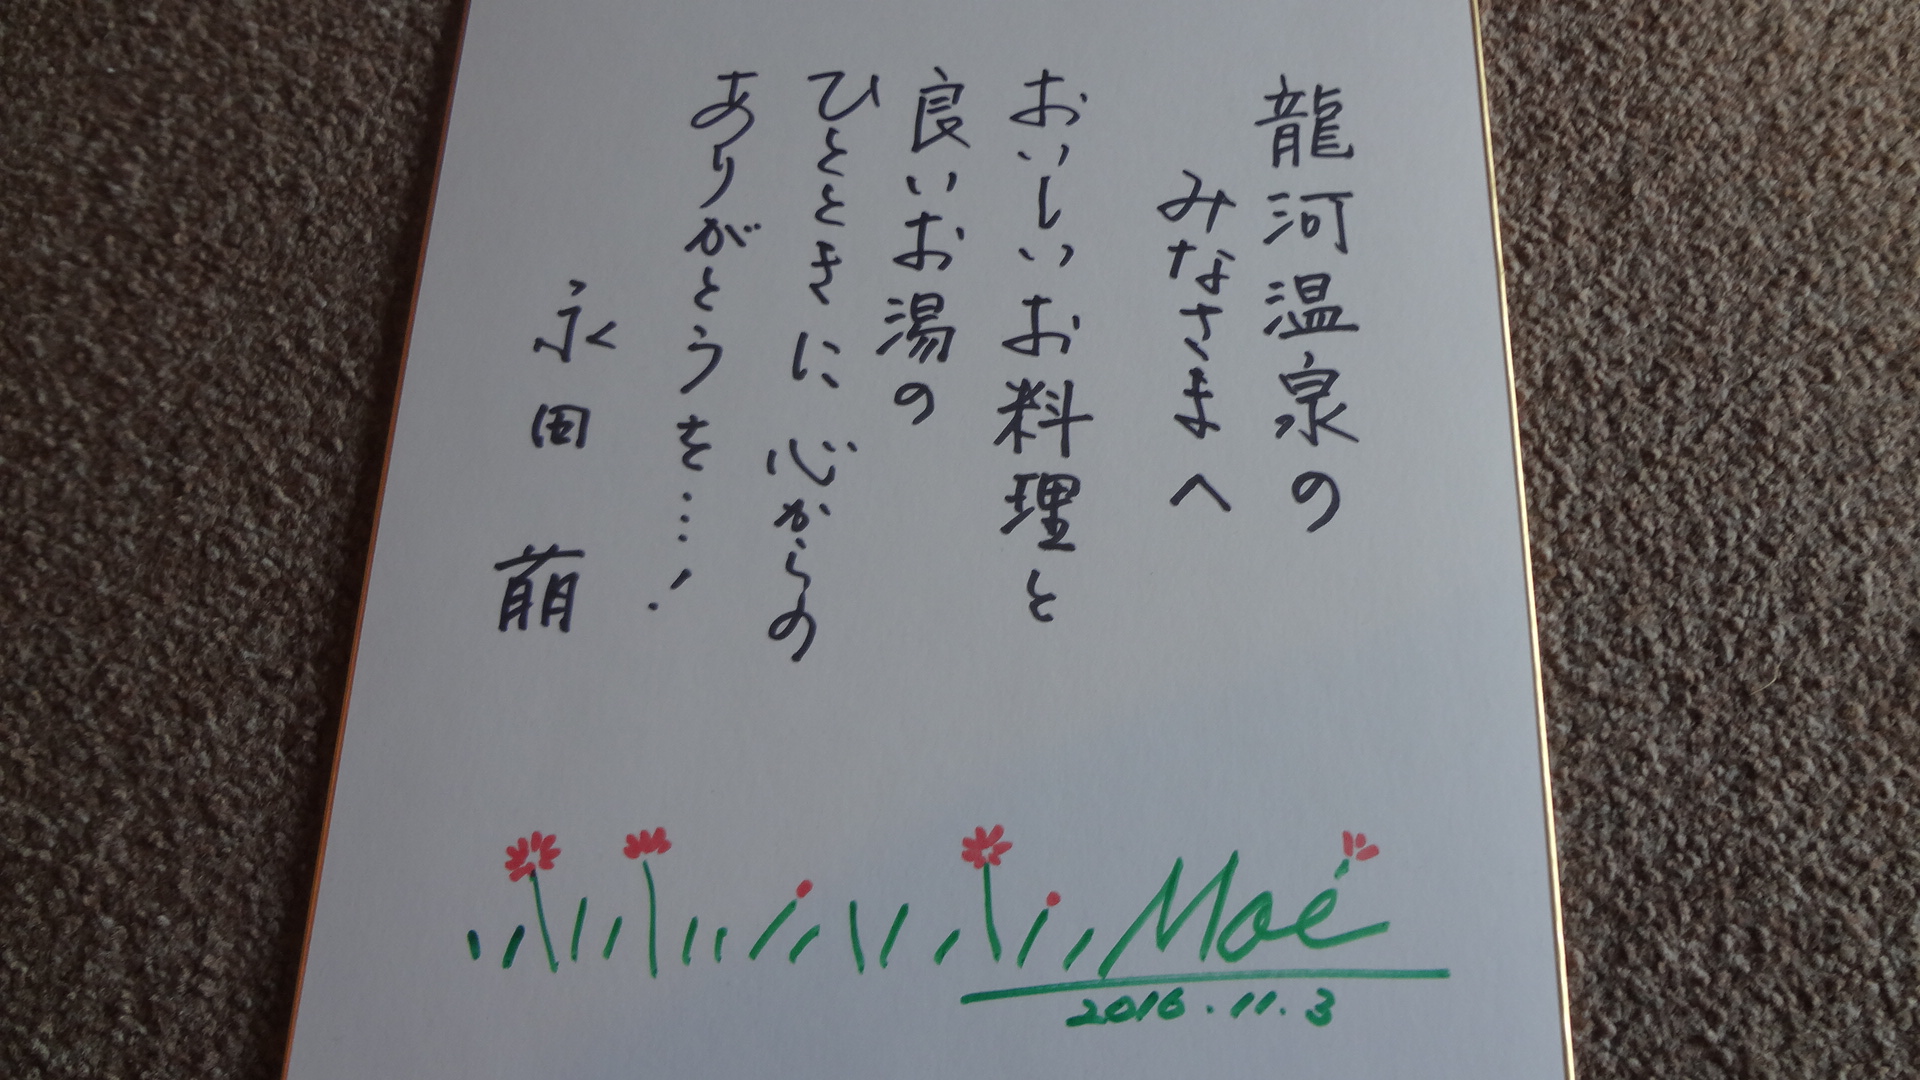 龍河温泉の
みなさまへ
おいしいお料理と
良いお湯の
ひとときに 心からの
ありがとうを…!
永田 萠
Moé
2016.11.3